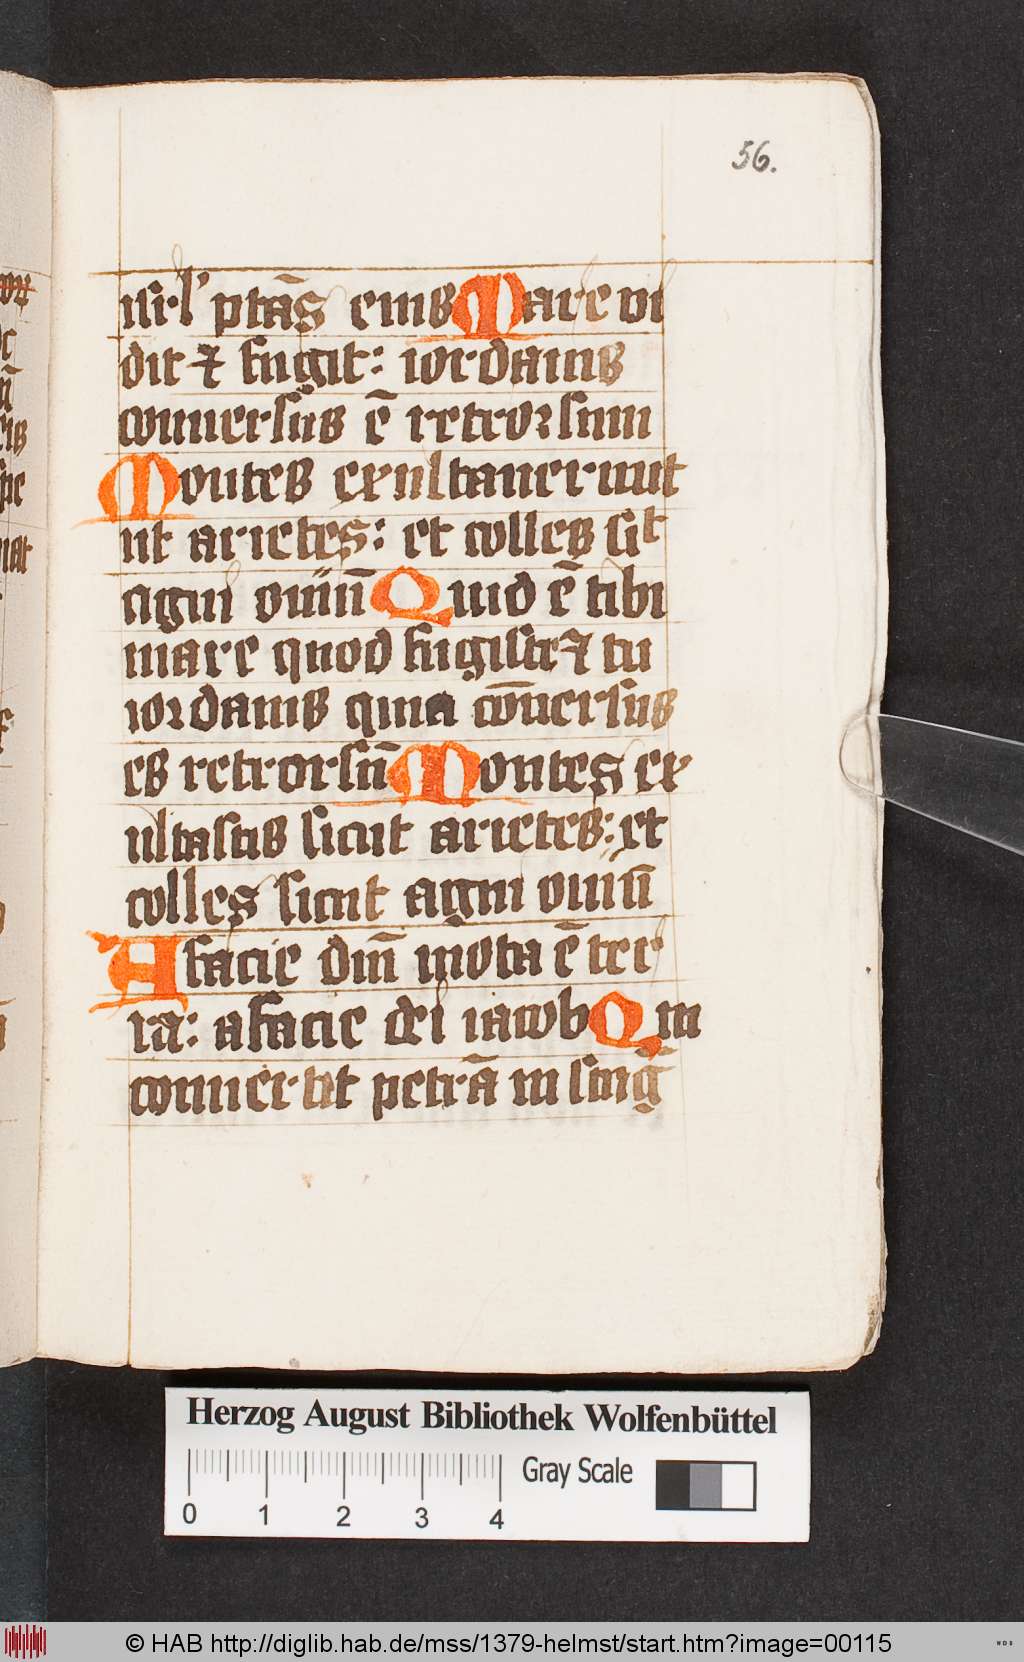 56.
isrl' ptãs eius Mare vi
dit ⁊ fugit: iordanis
conuersus ē retrorsum
Montes exultauerunt
ut arietes: et colles sic̃t
agni ouiũ Quid ē tibi
mare quod fugisti ⁊ tu
iordanis quia cõuersus
es retrorsũ Montes ex
ultastis sicut arietes: et
colles sicut agni ouiũ
A facie dñi mota ē ter
ra: a facie dei iacob Qui
conuertit petrã in stãg̃
Herzog August Bibliothek Wolfenbüttel
0 1 2 3 4 Gray Scale
© HAB http://diglib.hab.de/mss/1379-helmst/start.htm?image=00115